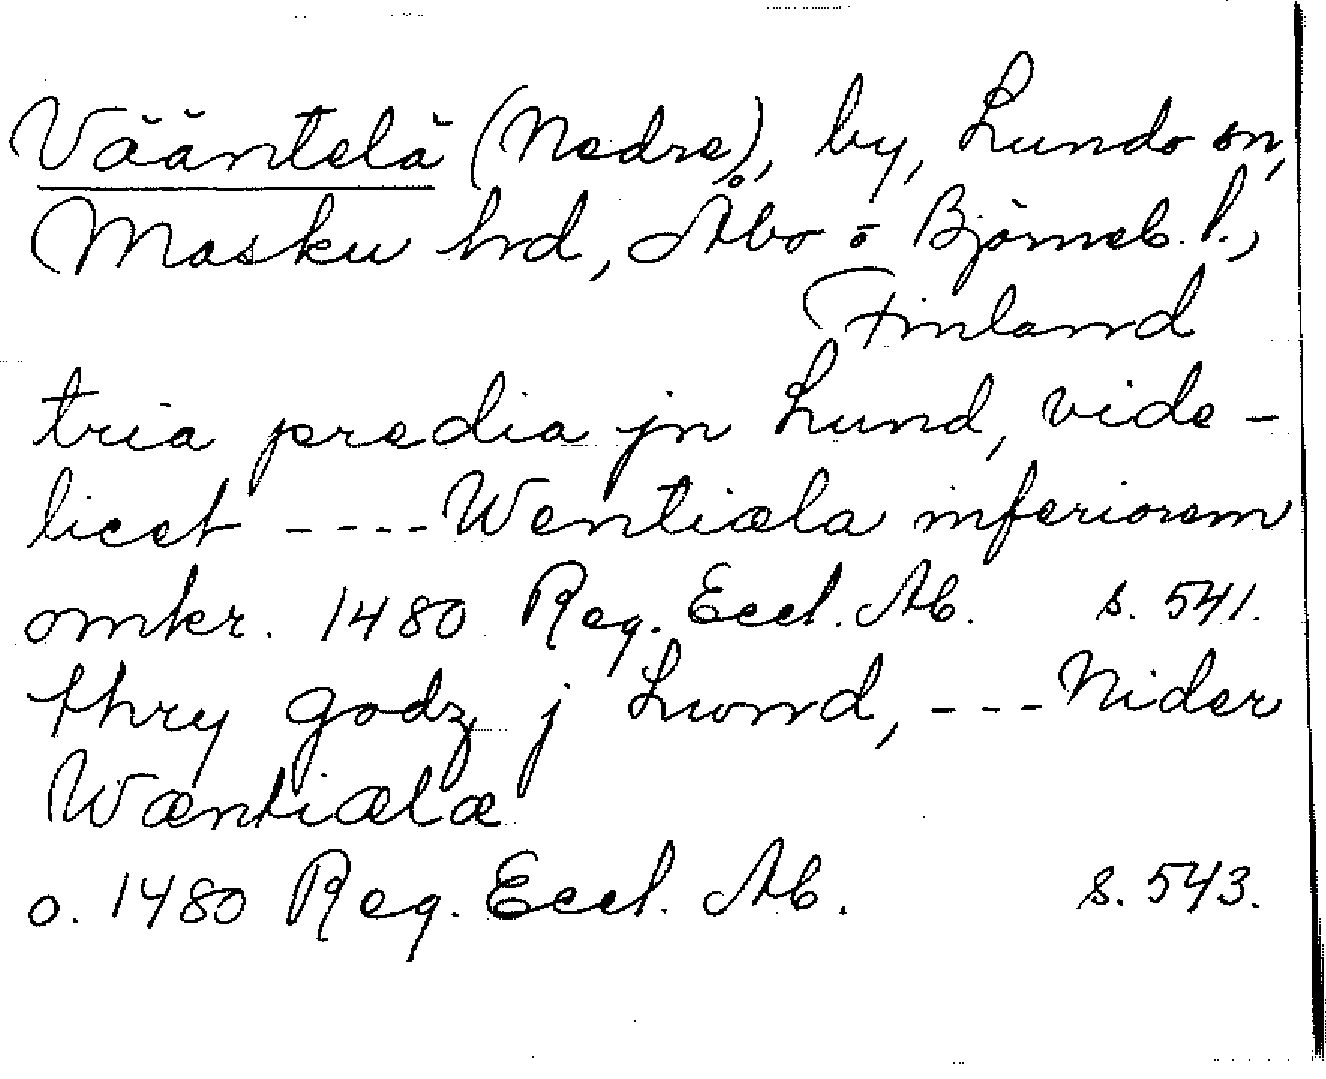 Vääntelä (Nedre), by, Lundo sn,
Masku hrd, Åbo o Björneb. l.,
Finland
tria predia jn Lund, vide-
licet ---- Wentiæla inferiorem
omkr. 1480 Reg. Eccl. Ab. s. 541.
thry godz j Lwnd, --- Nider
Wæntiælæ
o. 1480 Reg. Eccl. Ab. s. 543.